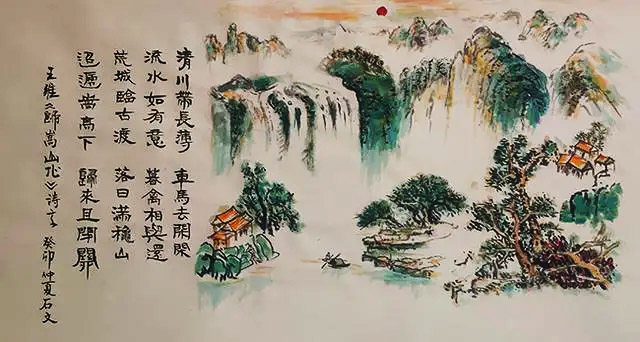 清川帶長薄 車馬去閑閑
流水如有意 暮禽相與還
荒城臨古渡 落日滿穐山
迢遞嵩高下 歸來且閉關
王維《歸嵩山作》詩意 癸卯仲夏石文